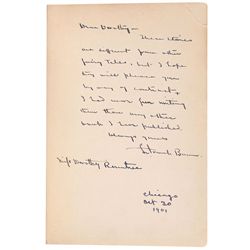 Dear Dorothy—
These stories
are different from other
fairy tales, but I hope
they will please you
by way of contrast,
I had more fun writing
them than any other
book I have published
Always yours
L. Frank Baum
Miss Dorothy Rountree
Chicago
Oct 20
1901